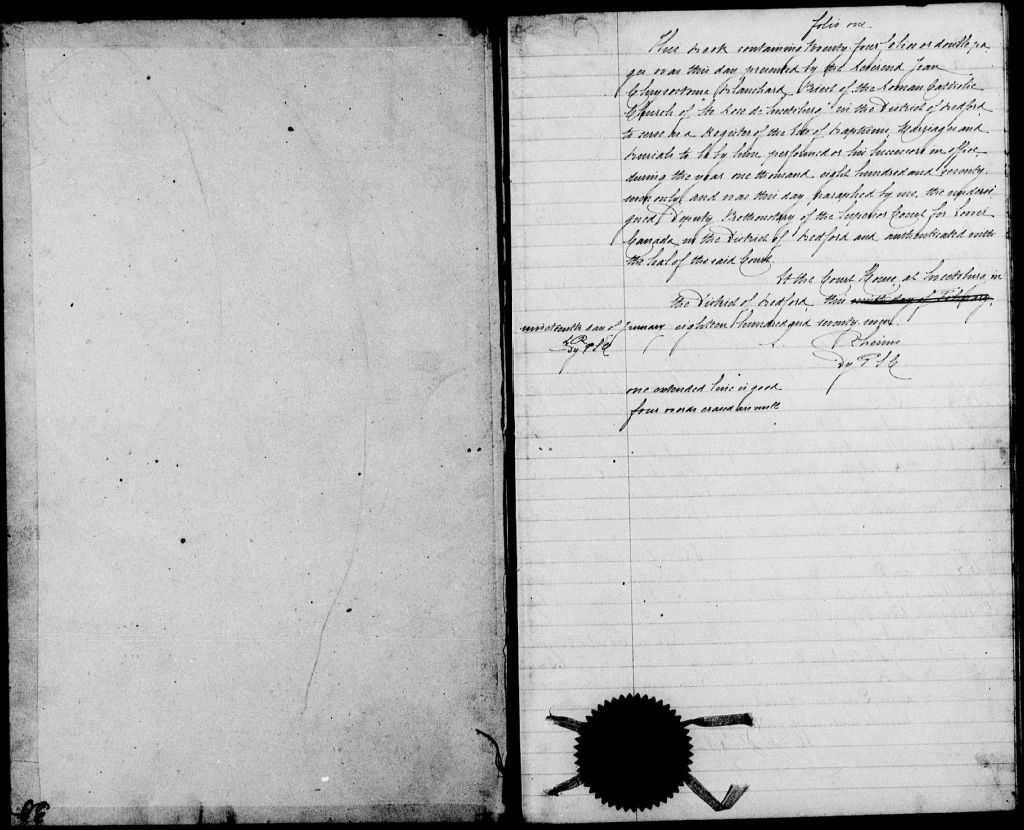 folio one.
This book containing twenty four folios or double pa-
ges was this day presented by the Reverend Jean
Chrysostome Blanchard Priest of the Roman Catholic
Church of "Ste Rose de Sweetsburg" in the District of Bedford
to serve as a Register of the Acts of Baptisms, Marriages and
Burials to be by him performed or his Successors in office,
during the year one thousand eight hundred and seventy
seven only, and was this day paraphed by me, the undersi-
gned, Deputy Prothonotary of the Superior Court for Lower
Canada in the District of Bedford and authenticated with
the Seal of the said Court.
At the Court House, at Sweetsburg, in
the District of Bedford, this ninth day of February,
nineteenth day of January eighteen hundred and seventy seven.
Dy P S C
Dy P S C
one extended line is good
four words erased are null